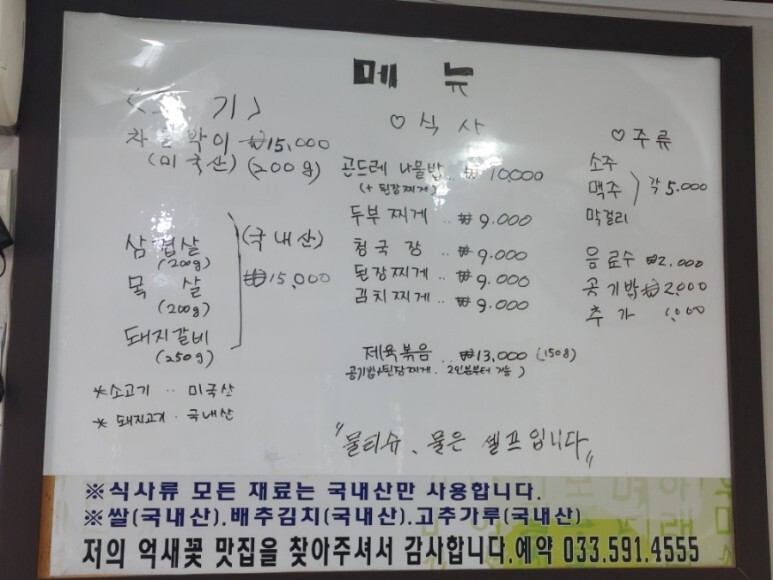 메 뉴
<고 기>
차돌박이 ₩15,000
(미국산) (200g)
삼겹살
(200g)
목 살
(200g)
돼지갈비
(250g)
(국내산)
₩15,000
*소고기 .. 미국산
* 돼지고기 . 국내산
♡식 사
곤드레 나물밥 .. ₩10,000
(+ 된장찌개)
두부찌게 .. ₩9.000
청국장 .. ₩9.000
된장찌게 .. ₩9.000
김치찌게 .. ₩9.000
제육볶음 .. ₩13,000 (150g)
공기밥+된장찌개. 2인분부터 가능 )
♡주류
소주
맥주
막걸리
각 5.000
음료수 ₩2.000
공기밥 ₩2,000
추 가 1,000
"물티슈, 물은 셀프입니다"
※식사류 모든 재료는 국내산만 사용합니다.
※쌀(국내산).배추김치(국내산).고추가루(국내산)
저의 억새꽃 맛집을 찾아주셔서 감사합니다.예약 033.591.4555